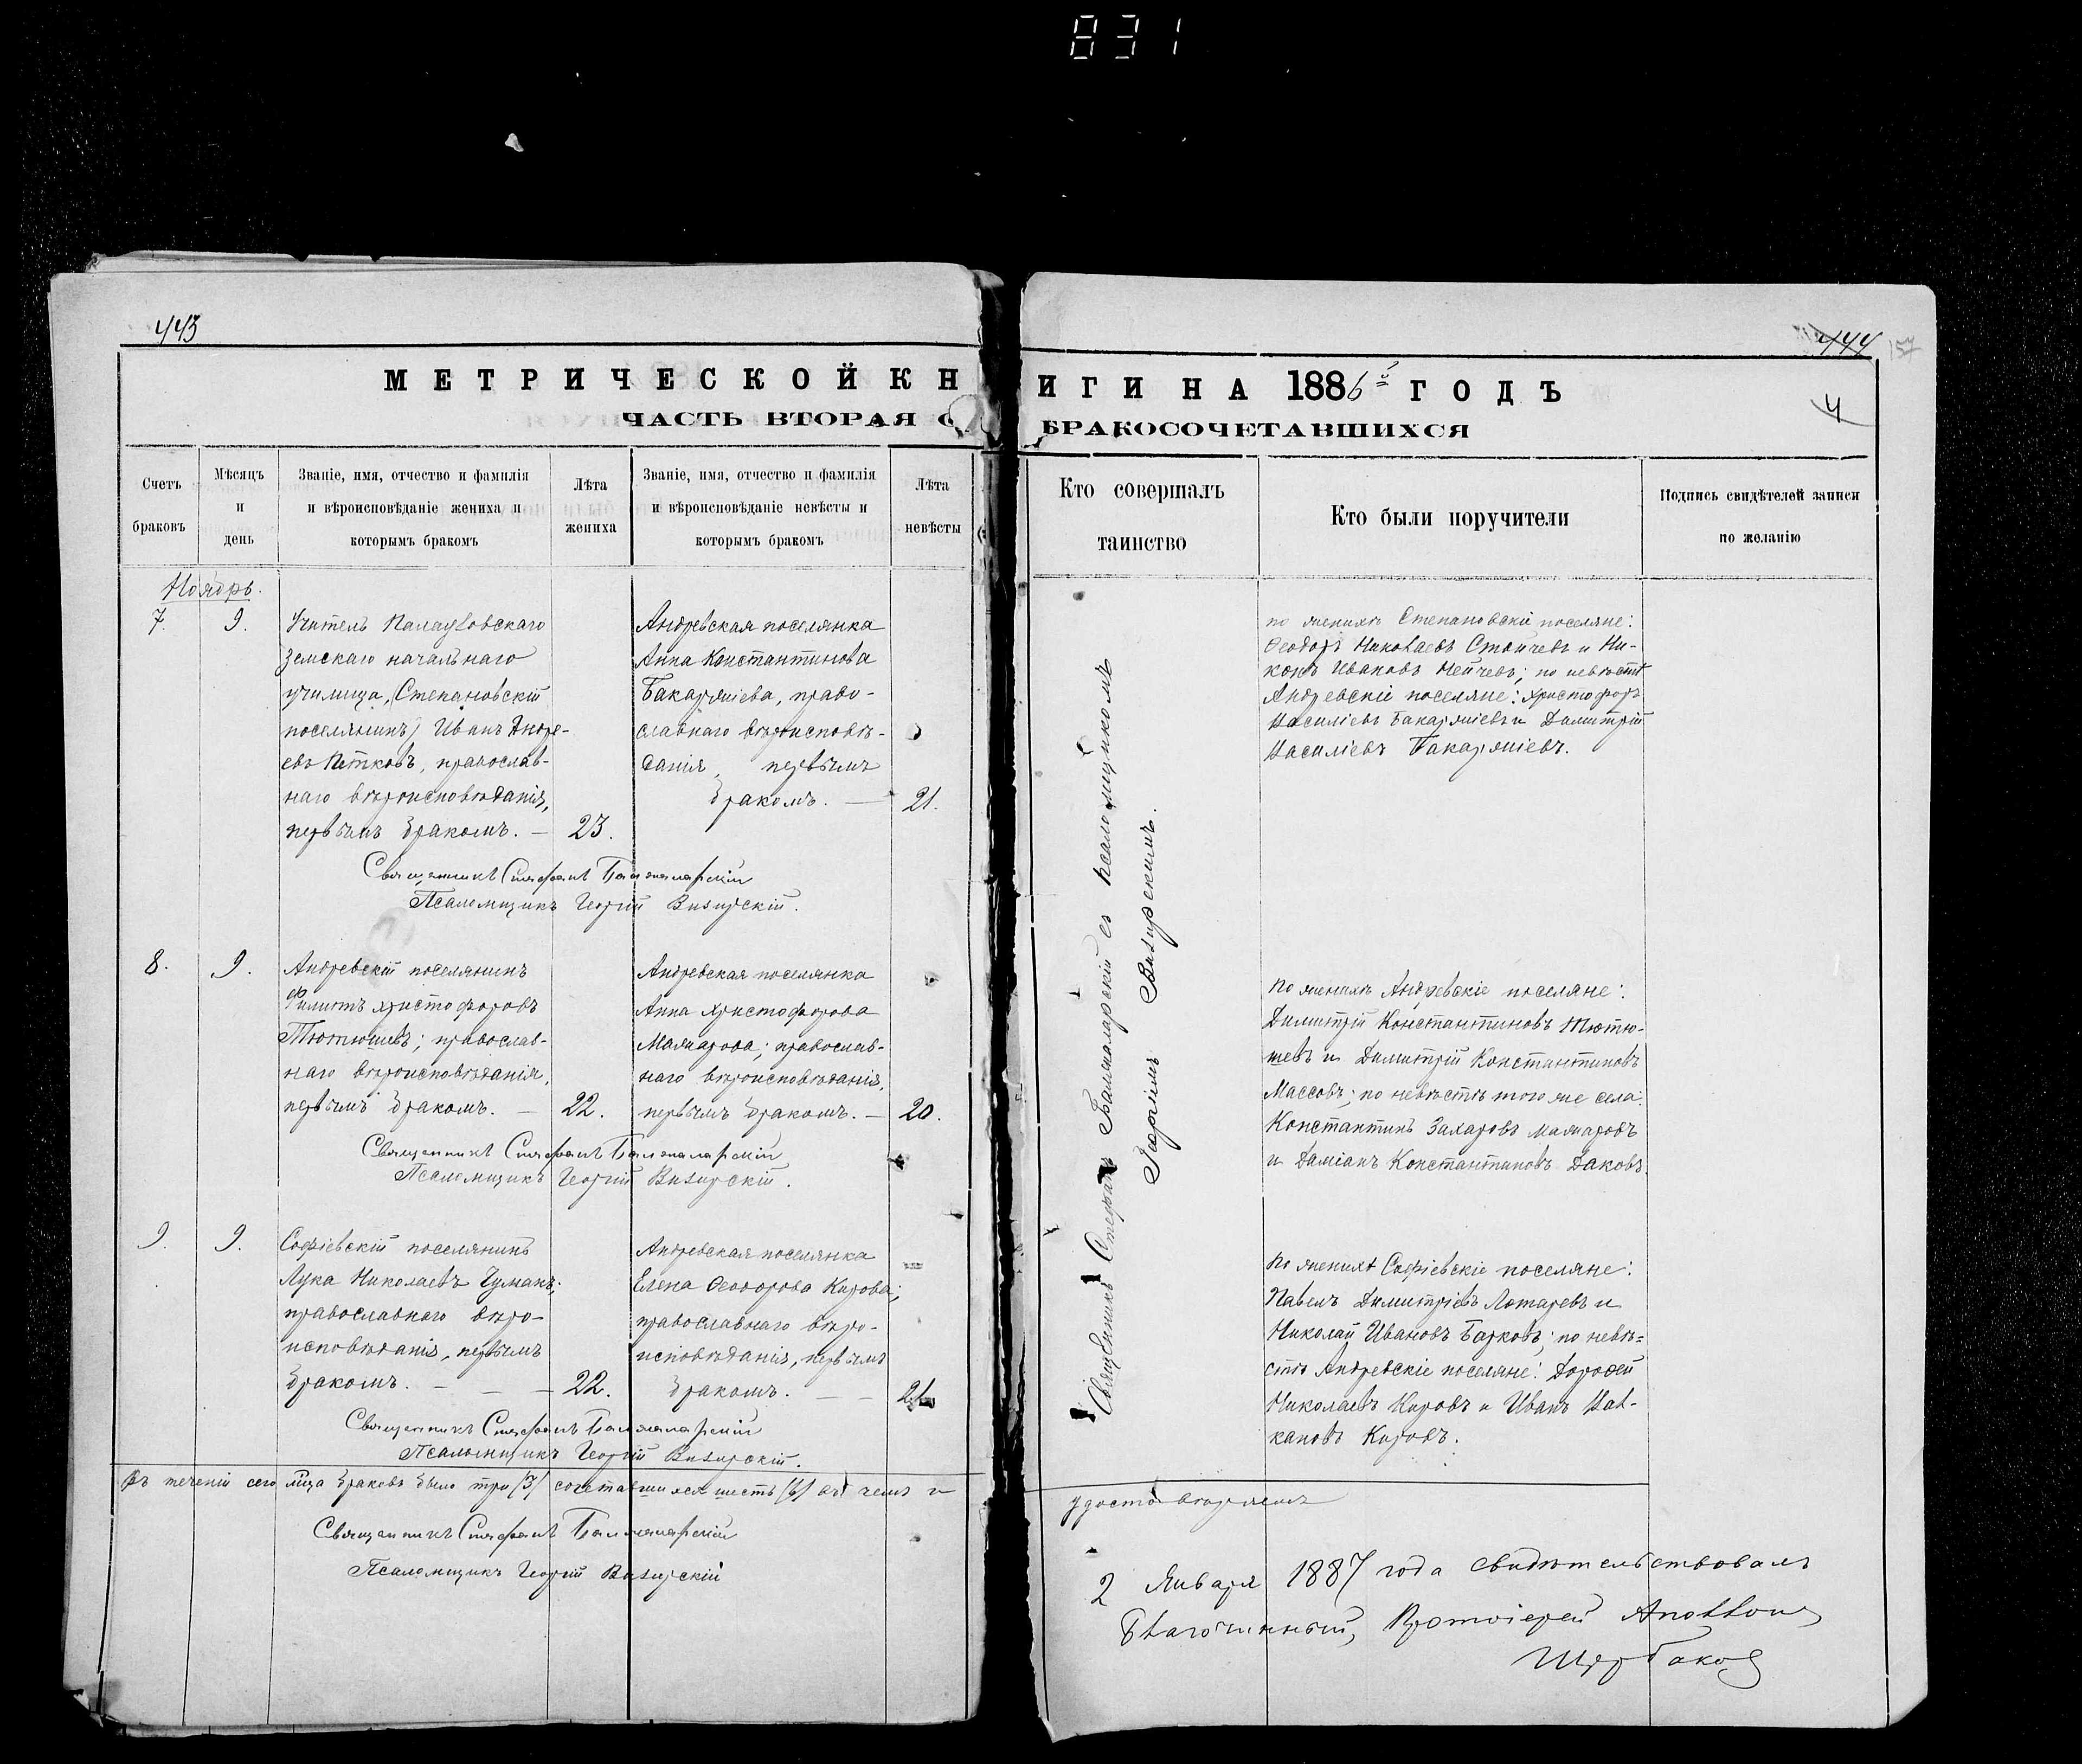 831
443
444
157
4
МЕТРИЧЕСКОЙ КНИГИ НА 1886й ГОДЪ
ЧАСТЬ ВТОРАЯ О БРАКОСОЧЕТАВШИХСЯ
Счетъ браковъ
Мѣсяцъ и день
Званіе, имя, отчество и фамилія
и вѣроисповѣданіе жениха и
которымъ бракомъ
Лѣта жениха
Званіе, имя, отчество и фамилія
и вѣроисповѣданіе невѣсты и
которымъ бракомъ
Лѣта невѣсты
Кто совершалъ
таинство
Кто были поручители
Подпись свидѣтелей записи
по желанію
Ноябрь.
7. 9.
Учитель
Земскаго начальнаго
училища, (Степановскій
поселянинъ) Иванъ Андре-
евъ Петковъ, православ-
наго вѣроисповѣданія,
первымъ бракомъ. — 23.
Андревская поселянка
Анна Константинова
Бакаржіева, право-
славнаго вѣроисповѣ-
данія, первымъ
бракомъ. — 21.
по женихѣ Степановскіе поселяне:
Ѳеодоръ Николаевъ Стойчевъ и Ни-
конъ Ивановъ Нейчевъ; по невѣстѣ
Андревскіе поселяне: Христофоръ
Василіевъ Бакаржіевъ и Димитрій
Василіевъ Бакаржіевъ.
Священникъ Стефанъ Балжаларскій
Псаломщикъ Георгій Визирскій.
8. 9.
Андревскій поселянинъ
Филиппъ Христофоровъ
Тютюшевъ; православ-
наго вѣроисповѣданія,
первымъ бракомъ. — 22.
Андревская поселянка
Анна Христофорова
Мажарова; православ-
наго вѣроисповѣданія,
первымъ бракомъ. — 20.
По женихѣ Андревскіе поселяне:
Димитрій Константиновъ Тютю-
шевъ и Димитрій Константиновъ
Массовъ; по невѣстѣ того же села:
Константинъ Захаровъ Мажаровъ
и Даміанъ Константиновъ Даковъ.
Священникъ Стефанъ Балжаларскій
Псаломщикъ Георгій Визирскій.
9. 9.
Софіевскій поселянинъ
Лука Николаевъ Чуманъ;
православнаго вѣро-
исповѣданія, первымъ
бракомъ. — — — 22.
Андревская поселянка
Елена Ѳеодорова Кирова;
православнаго вѣро-
исповѣданія, первымъ
бракомъ. — — 21
По женихѣ Софіевскіе поселяне:
Павелъ Димитріевъ Лотаревъ и
Николай Ивановъ Барковъ; по невѣ-
стѣ Андревскіе поселяне: Дороѳей
Николаевъ Кировъ и Иванъ Нав-
кановъ Кировъ.
Священникъ Стефанъ Балжаларскій
Псаломщикъ Георгій Визирскій.
Священникъ Стефанъ Балжаларскій съ псаломщикомъ
Георгіемъ Визирскимъ.
Въ теченіи сего мѣсяца браковъ было три (3) сочетавшихся шесть (6) въ чемъ и
удостовѣряемъ
Священникъ Стефанъ Балжаларскій
Псаломщикъ Георгій Визирскій
2 Января 1887 года свидѣтельствовалъ
Благочинный, Протоіерей Аполлонъ
Щербаковъ